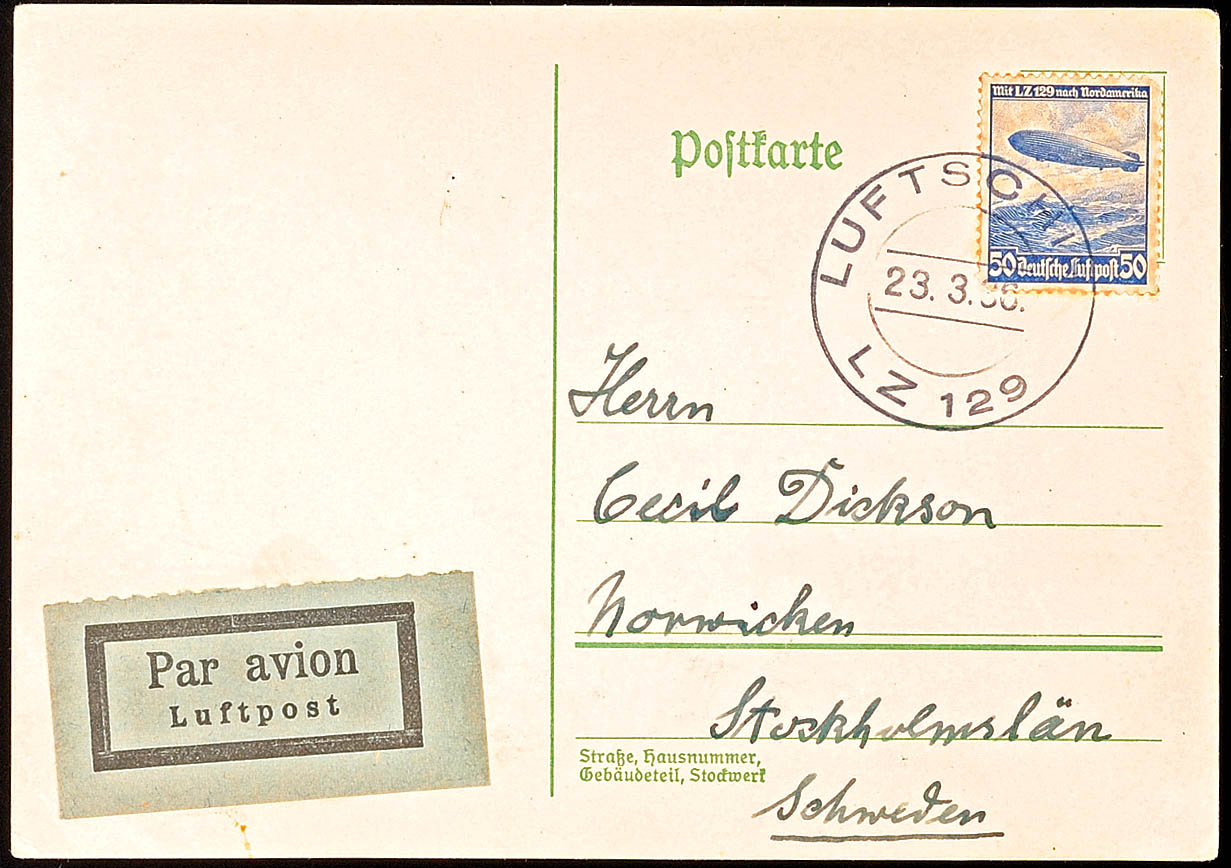 Mit LZ 129 nach Nordamerika
Postkarte
50 Deutsche Luftpost 50
LUFTSCHI
23. 3. 36.
LZ 129
Herrn
Cecil Dickson
Norwicken
Stockholmslän
Straße, Hausnummer,
Gebäudeteil, Stockwerk
Schweden
Par avion
Luftpost